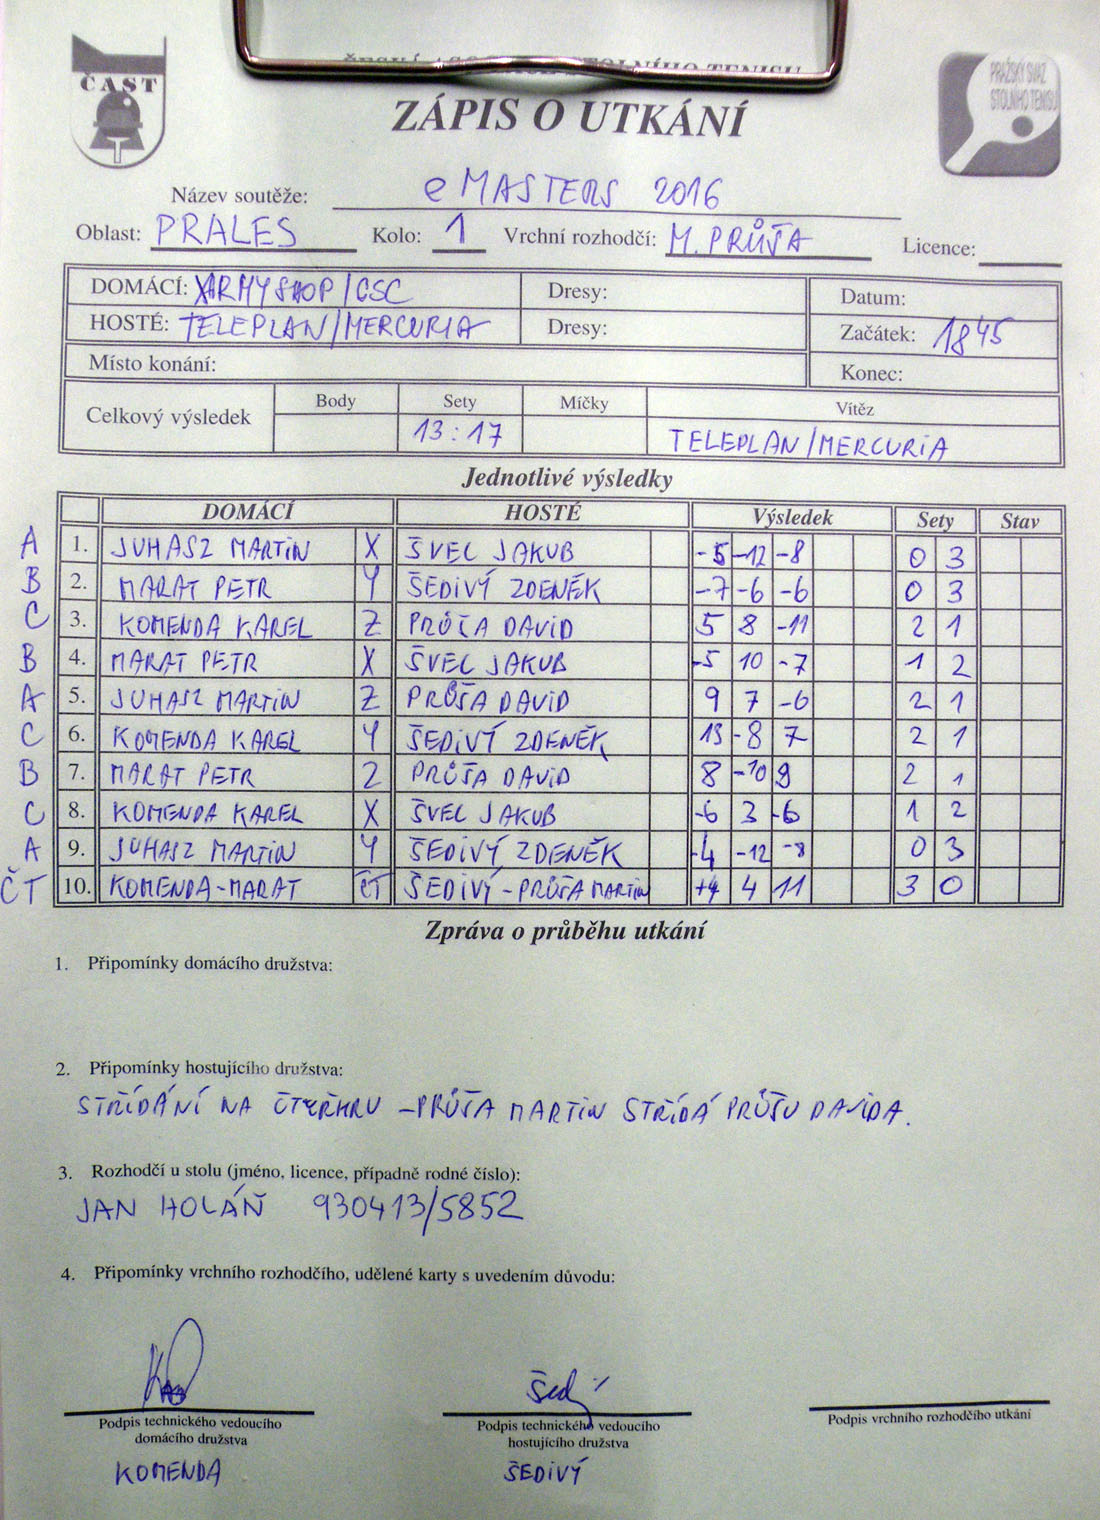 ČESKÁ ASOCIACE STOLNÍHO TENISU
ČAST
PRAŽSKÝ SVAZ
STOLNÍHO TENISU
ZÁPIS O UTKÁNÍ
Název soutěže: e MASTERS 2016
Oblast: PRALES Kolo: 1 Vrchní rozhodčí: M. PRŮŠA Licence:
DOMÁCÍ: ARMYSHOP/GSC Dresy: Datum:
HOSTÉ: TELEPLAN/MERCURIA Dresy: Začátek: 18 45
Místo konání: Konec:
Celkový výsledek Body Sety Míčky Vítěz
13:17 TELEPLAN/MERCURIA
Jednotlivé výsledky
DOMÁCÍ HOSTÉ Výsledek Sety Stav
A 1. JUHASZ MARTIN X ŠVEC JAKUB -5 -12 -8 0 3
B 2. MARAT PETR Y ŠEDIVÝ ZDENĚK -7 -6 -6 0 3
C 3. KOMENDA KAREL Z PRŮŠA DAVID 5 8 -11 2 1
B 4. MARAT PETR X ŠVEC JAKUB -5 10 -7 1 2
A 5. JUHASZ MARTIN Z PRŮŠA DAVID 9 7 -6 2 1
C 6. KOMENDA KAREL Y ŠEDIVÝ ZDENĚK 13 -8 7 2 1
B 7. MARAT PETR Z PRŮŠA DAVID 8 -10 9 2 1
C 8. KOMENDA KAREL X ŠVEC JAKUB -6 3 -6 1 2
A 9. JUHASZ MARTIN Y ŠEDIVÝ ZDENĚK -4 -12 -8 0 3
ČT 10. KOMENDA-MARAT ČT ŠEDIVÝ-PRŮŠA MARTIN +4 4 11 3 0
Zpráva o průběhu utkání
1. Připomínky domácího družstva:
2. Připomínky hostujícího družstva:
STŘÍDÁNÍ NA ČTYŘHRU - PRŮŠA MARTIN STŘÍDÁ PRŮŠU DAVIDA.
3. Rozhodčí u stolu (jméno, licence, případně rodné číslo):
JAN HOLÁŇ 930413/5852
4. Připomínky vrchního rozhodčího, udělené karty s uvedením důvodu:
Šedý
Podpis technického vedoucího Podpis technického vedoucího Podpis vrchního rozhodčího utkání
domácího družstva hostujícího družstva
KOMENDA ŠEDIVÝ